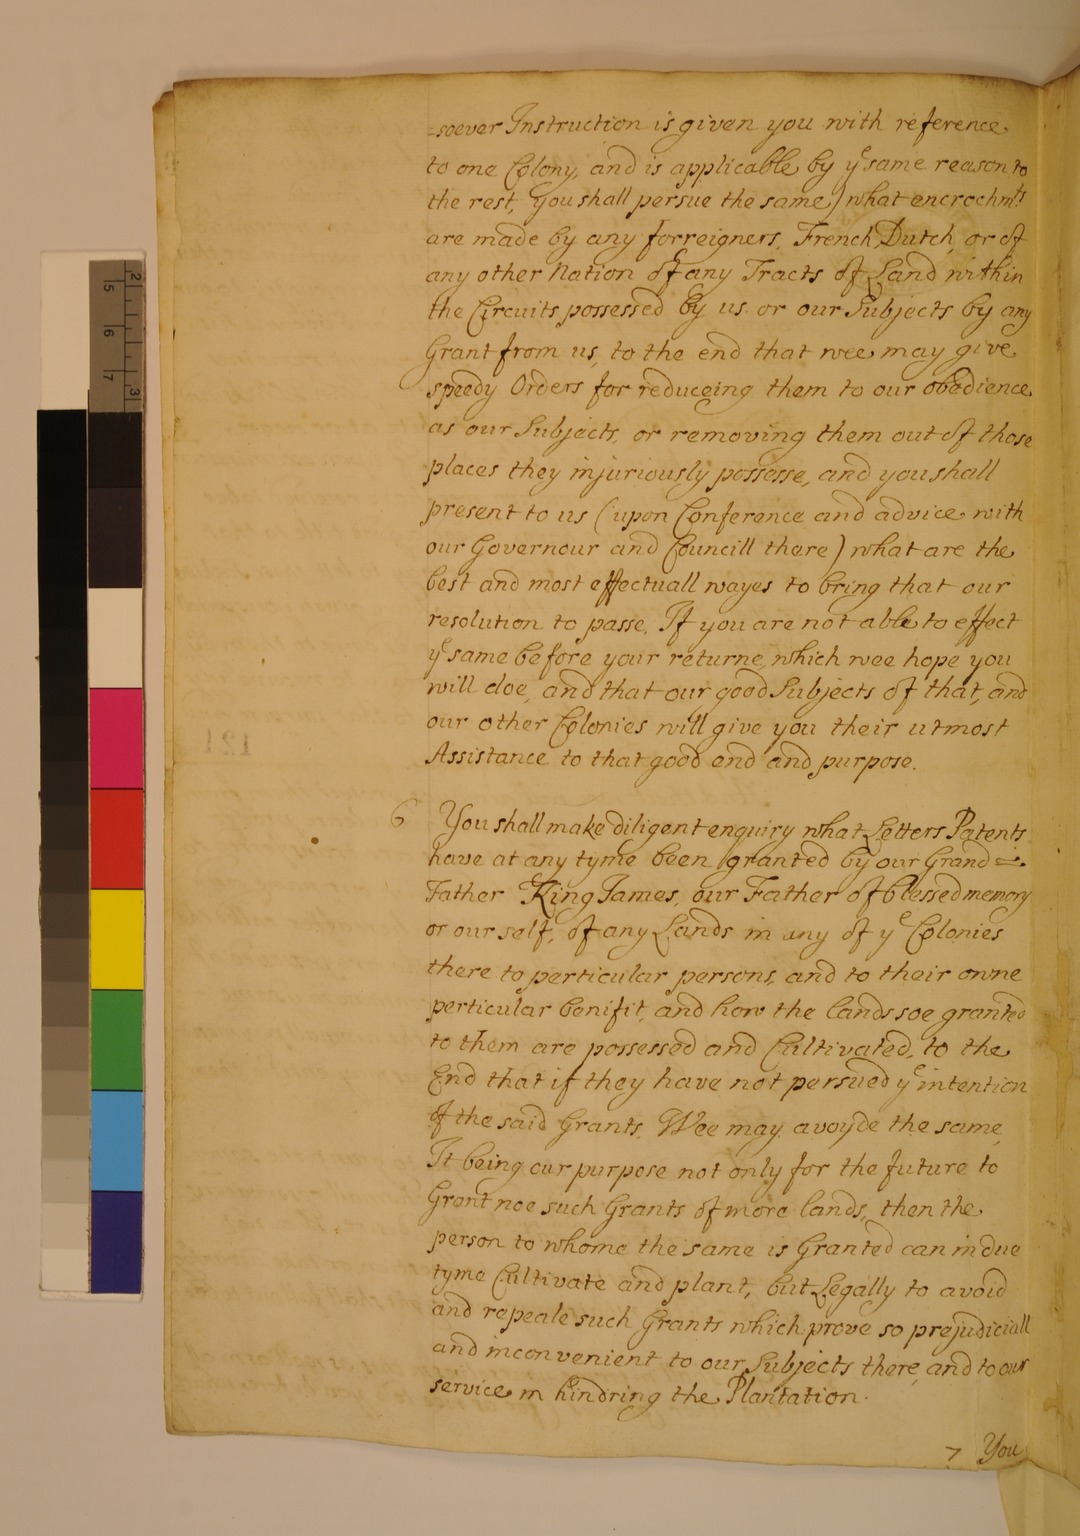 =soever Instruction is given you with reference
to one Colony, and is applicable by yᵉ same reason to
the rest, you shall persue the same) what encrochmᵗˢ
are made by any forreigners, French, Dutch, or of
any other Nation of any Tracts of Land within
the Circuits possessed by us or our Subjects by any
Grant from us, to the end that wee may give
speedy Orders for reduceing them to our obedience
as our Subjects, or removing them out of those
places they injuriously possesse, and you shall
present to us (upon Conference and advice with
our Governour and Councill there) what are the
best and most effectuall wayes to bring that our
resolution to passe, If you are not able to effect
yᵉ same before your returne, which wee hope you
will doe, and that our good Subjects of that, and
our other Colonies will give you their utmost
Assistance to that good end and purpose.
6 You shall make diligent enquiry what Letters Patents
have at any tyme been granted by our Grand=
Father King James, our Father of blessed memory
or our self, of any Lands in any of yᵉ Colonies
there to perticular persons, and to their owne
perticular benifit, and how the lands soe granted
to them are possessed and Cultivated, to the
End that if they have not persued yᵉ intention
of the said Grants, Wee may avoyde the same,
It being our purpose not only for the future to
Grant noe such Grants of more lands, then the
person to whome the same is Granted can in due
tyme Cultivate and plant, but Legally to avoid
and repeale such Grants which prove so prejudiciall
and inconvenient to our Subjects there, and to our
service in hindring the Plantation.
7 You
15 16 17
2 3